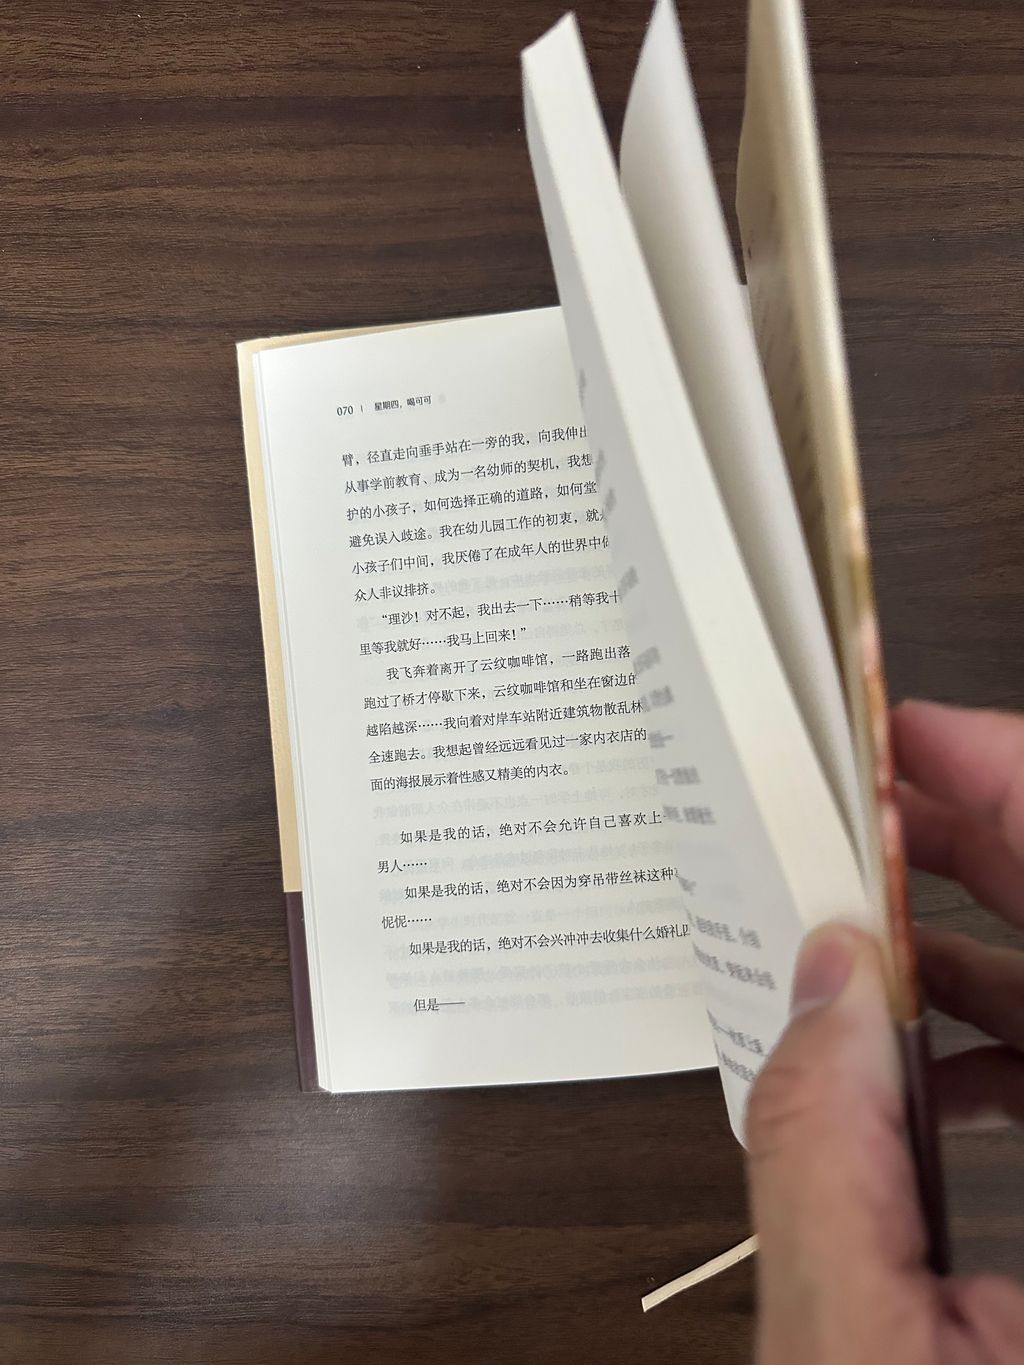 070 | 星期四，喝可可
臂，径直走向垂手站在一旁的我，向我伸出
从事学前教育、成为一名幼师的契机，我想
护的小孩子，如何选择正确的道路，如何堂
避免误入歧途。我在幼儿园工作的初衷，就
小孩子们中间，我厌倦了在成年人的世界中
众人非议排挤。
“理沙！对不起，我出去一下……稍等我十
里等我就好……我马上回来！”
我飞奔着离开了云纹咖啡馆，一路跑出落
跑过了桥才停歇下来，云纹咖啡馆和坐在窗边的
越陷越深……我向着对岸车站附近建筑物散乱林
全速跑去。我想起曾经远远看见过一家内衣店的
面的海报展示着性感又精美的内衣。
如果是我的话，绝对不会允许自己喜欢上
男人……
如果是我的话，绝对不会因为穿吊带丝袜这种
怩怩……
如果是我的话，绝对不会兴冲冲去收集什么婚礼
但是——